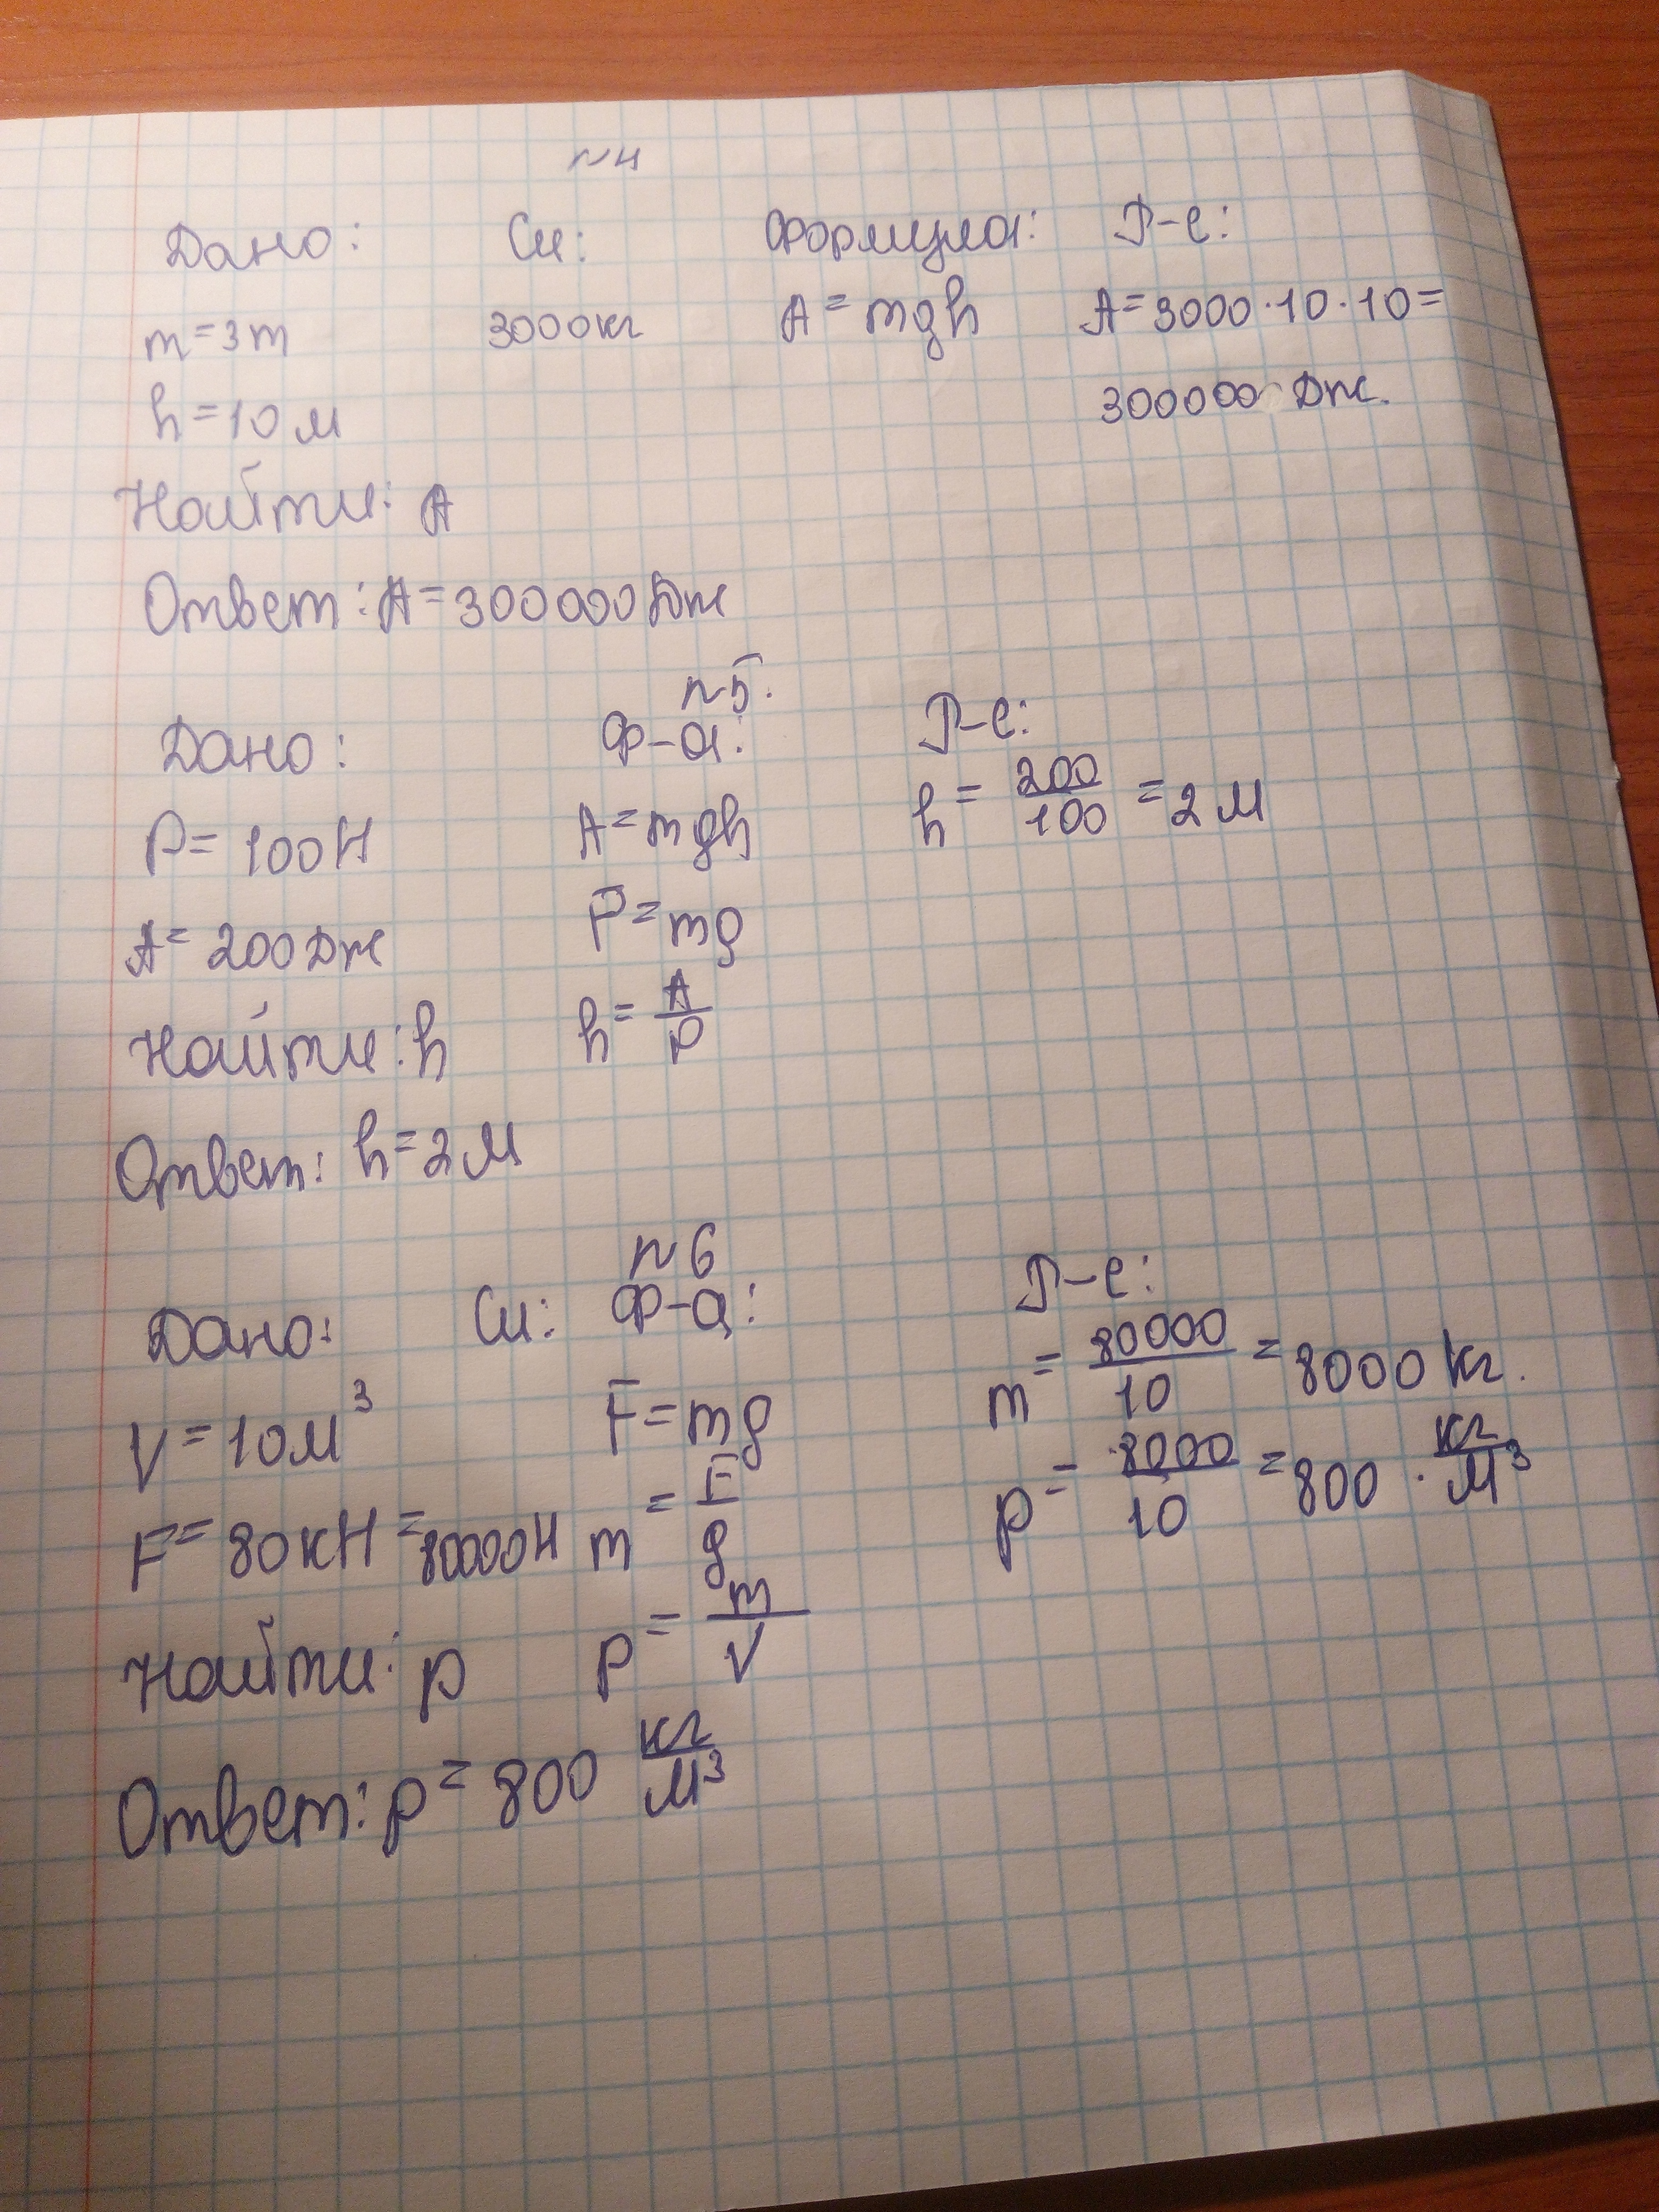 №4
Дано: Си: Формула: Р-е:
m=3т 3000кг A=mgh A=3000·10·10=
h=10м 300000 Дж.
Найти: A
Ответ: A=300000Дж
№5.
Дано: Ф-а: Р-е:
P=100Н A=mgh h=200/100=2м
A=200Дж F=mg
Найти: h h=A/P
Ответ: h=2м
№6
Дано: Си: Ф-а: Р-е:
V=10м³ F=mg m=80000/10=8000 кг.
F=80кН=80000Н m=F/g p=8000/10=800 · кг/м³
Найти: p p=m/V
Ответ: p=800 кг/м³